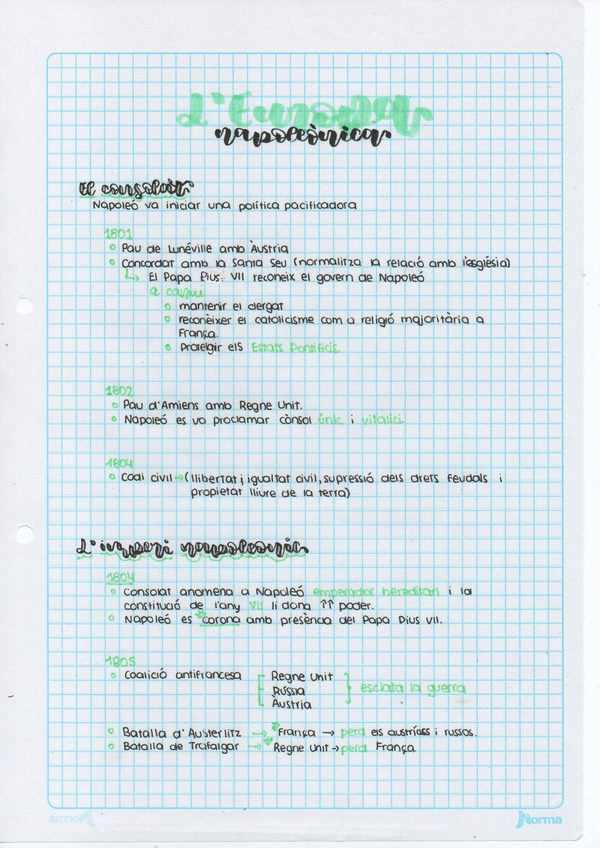 L'Europa
napoleònica
El consolat
Napoleó va iniciar una política pacificadora
1801
Pau de Lunéville amb Àustria
Concordat amb la Santa Seu (normalitza la relació amb l'església)
↳ El Papa Pius VII reconeix el govern de Napoleó
a canvi
mantenir el clergat
reconèixer el catolicisme com a religió majoritària a
França.
Protegir els Estats Pontificis.
1802
Pau d'Amiens amb Regne Unit.
Napoleó es va proclamar cònsol únic i vitalici.
1804
Codi civil → (llibertat i igualtat civil, supressió dels drets feudals i
propietat lliure de la terra)
L'imperi napoleònic
1804
Consolat anomena a Napoleó emperador hereditari i la
constitució de l'any VII li dona ↑↑ poder.
Napoleó es corona amb presència del Papa Pius VII.
1805
Coalició antifrancesa
Regne Unit
Rússia
Àustria
esclata la guerra
Batalla d'Austerlitz → França → perd els austríacs i russos.
Batalla de Trafalgar → Regne Unit → perd França
Norma